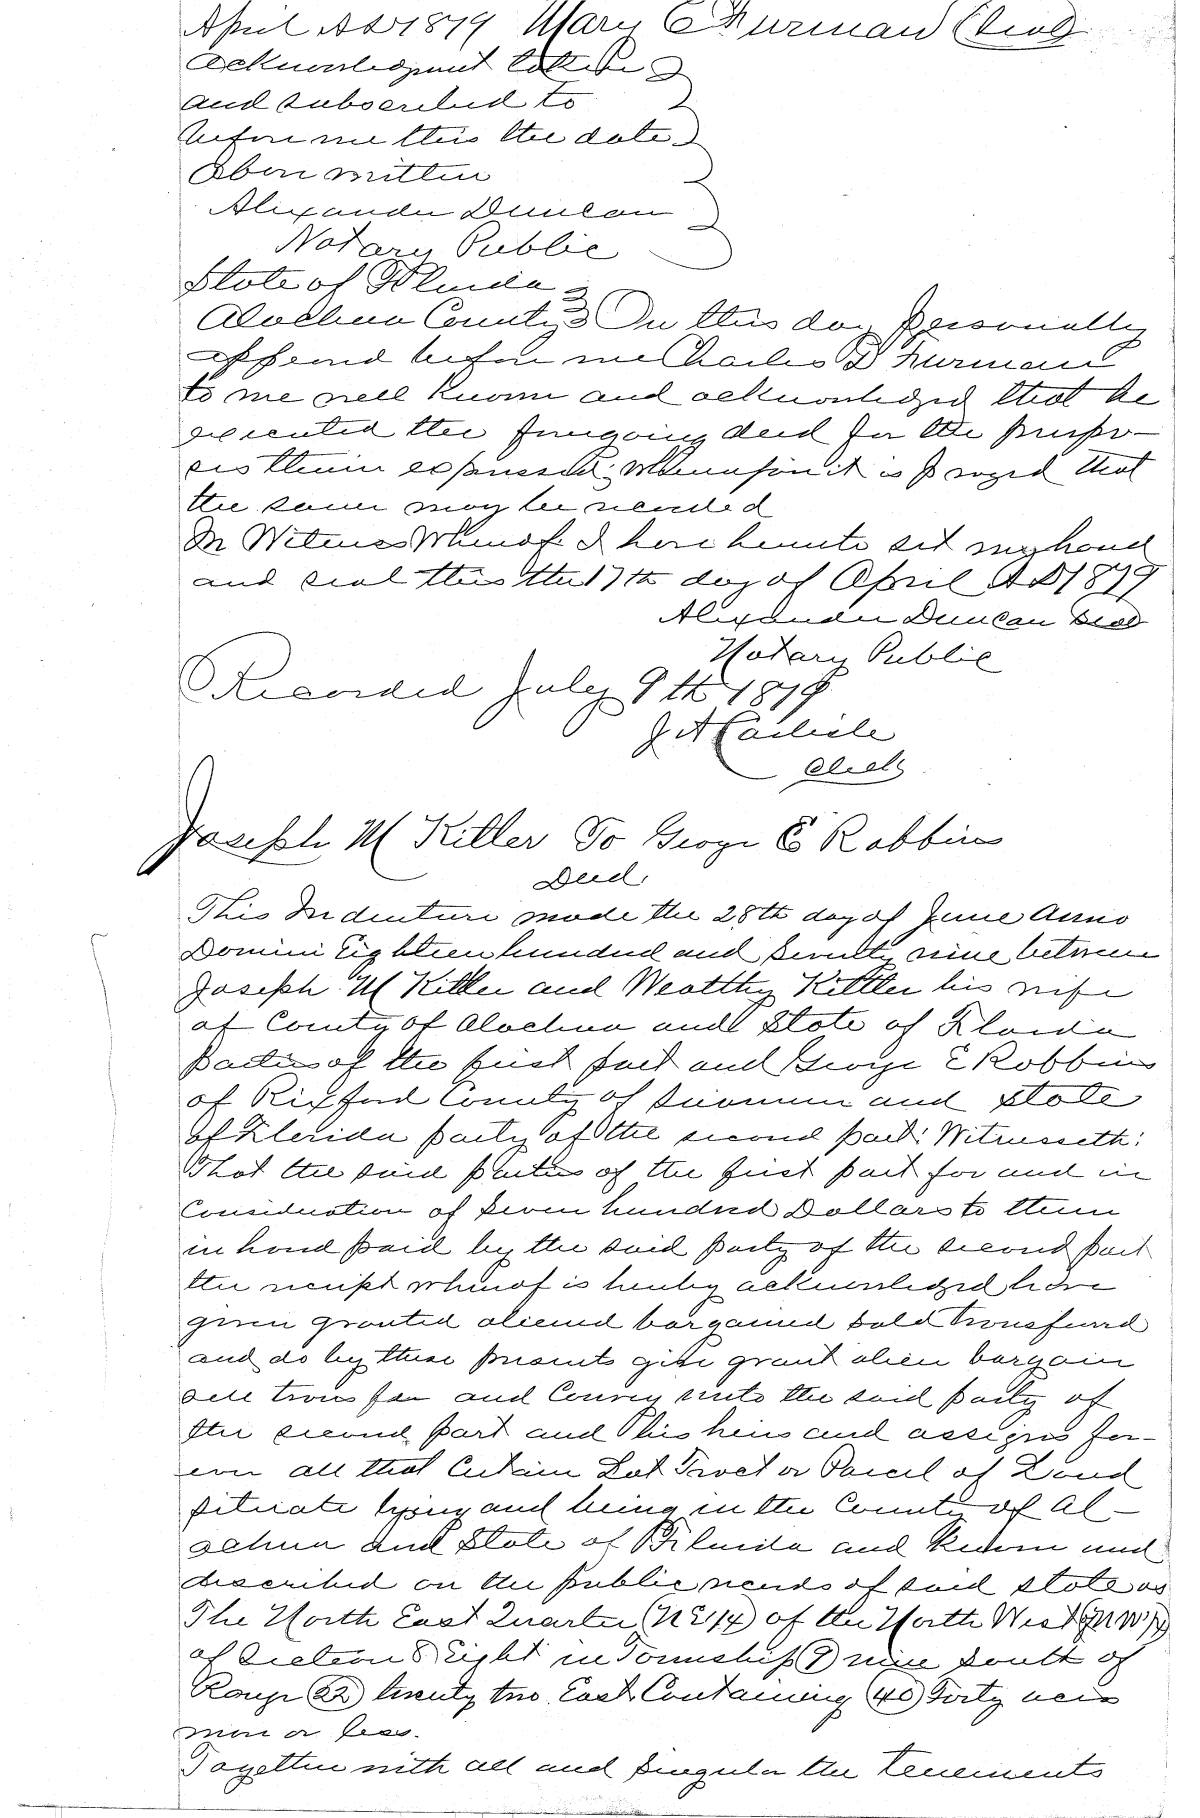 April AD 1879 Mary E Furman (Seal)
Acknowledgment taken
and subscribed to
before me this the date
above written
Alexander Duncan
Notary Public
State of Florida
Alachua County On this day personally
appeared before me Charles D Furman
to me well known and acknowledged that he
executed the foregoing deed for the purpo-
ses therein expressed; Whereupon it is prayed that
the same may be recorded
In Witness Whereof I have hereunto set my hand
and seal this the 17th day of April AD 1879
Alexander Duncan Seal
Notary Public
Recorded July 9th 1879
J A Carlisle
Clerk
Joseph M Kittler To George E Robbins
Deed
This Indenture made the 28th day of June Anno
Domini Eighteen hundred and Seventy nine between
Joseph M Kittler and Wealthy Kittler his wife
of County of Alachua and State of Florida
parties of the first part and George E Robbins
of Rixford County of Suwannee and State
of Florida party of the second part: Witnesseth:
That the said parties of the first part for and in
Consideration of Seven hundred Dollars to them
in hand paid by the said party of the second part
the receipt whereof is hereby acknowledged have
given granted aliened bargained sold transferred
and do by these presents give grant alien bargain
sell transfer and Convey unto the said party of
the second part and his heirs and assigns for-
ever all that Certain Lot Tract or Parcel of Land
situate lying and being in the County of Al-
achua and State of Florida and known and
described on the public records of said state as
The North East Quarter (NE1/4) of the North West (NW1/4)
of Section 8 Eight in Township (9) nine South of
Range (22) twenty two East Containing (40) Forty acres
more or less.
Together with all and singular the tenements